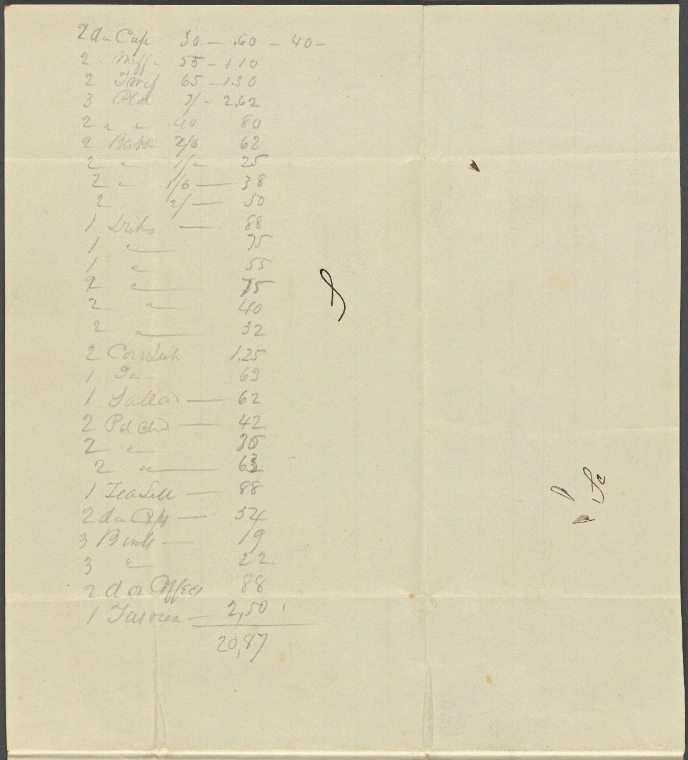 2 do Cups 30 — .60 — 40 —
2 " Muff — 55 — 1.10
2 65 — 1.30
3 7/ — 2,62
2 " " 40 80
2 Bake 2/6 62
2 " 1/ — 25
2 " 1/6 — 38
2 2/ — 50
1 Dishs — 88
1 " — 75
1 " — 55
2 " — 75
2 " — 40
2 " — 32
2 Cov Dish 1,25
1 69
1 Sallad — 62
2 Pitcher — 42
2 " — 30
2 " — 63
1 Tea Sett — 88
2 do Cups — 54
3 Bowls — 19
3 " 22
2 doz 88
1 Tureen — 2,50
20,87